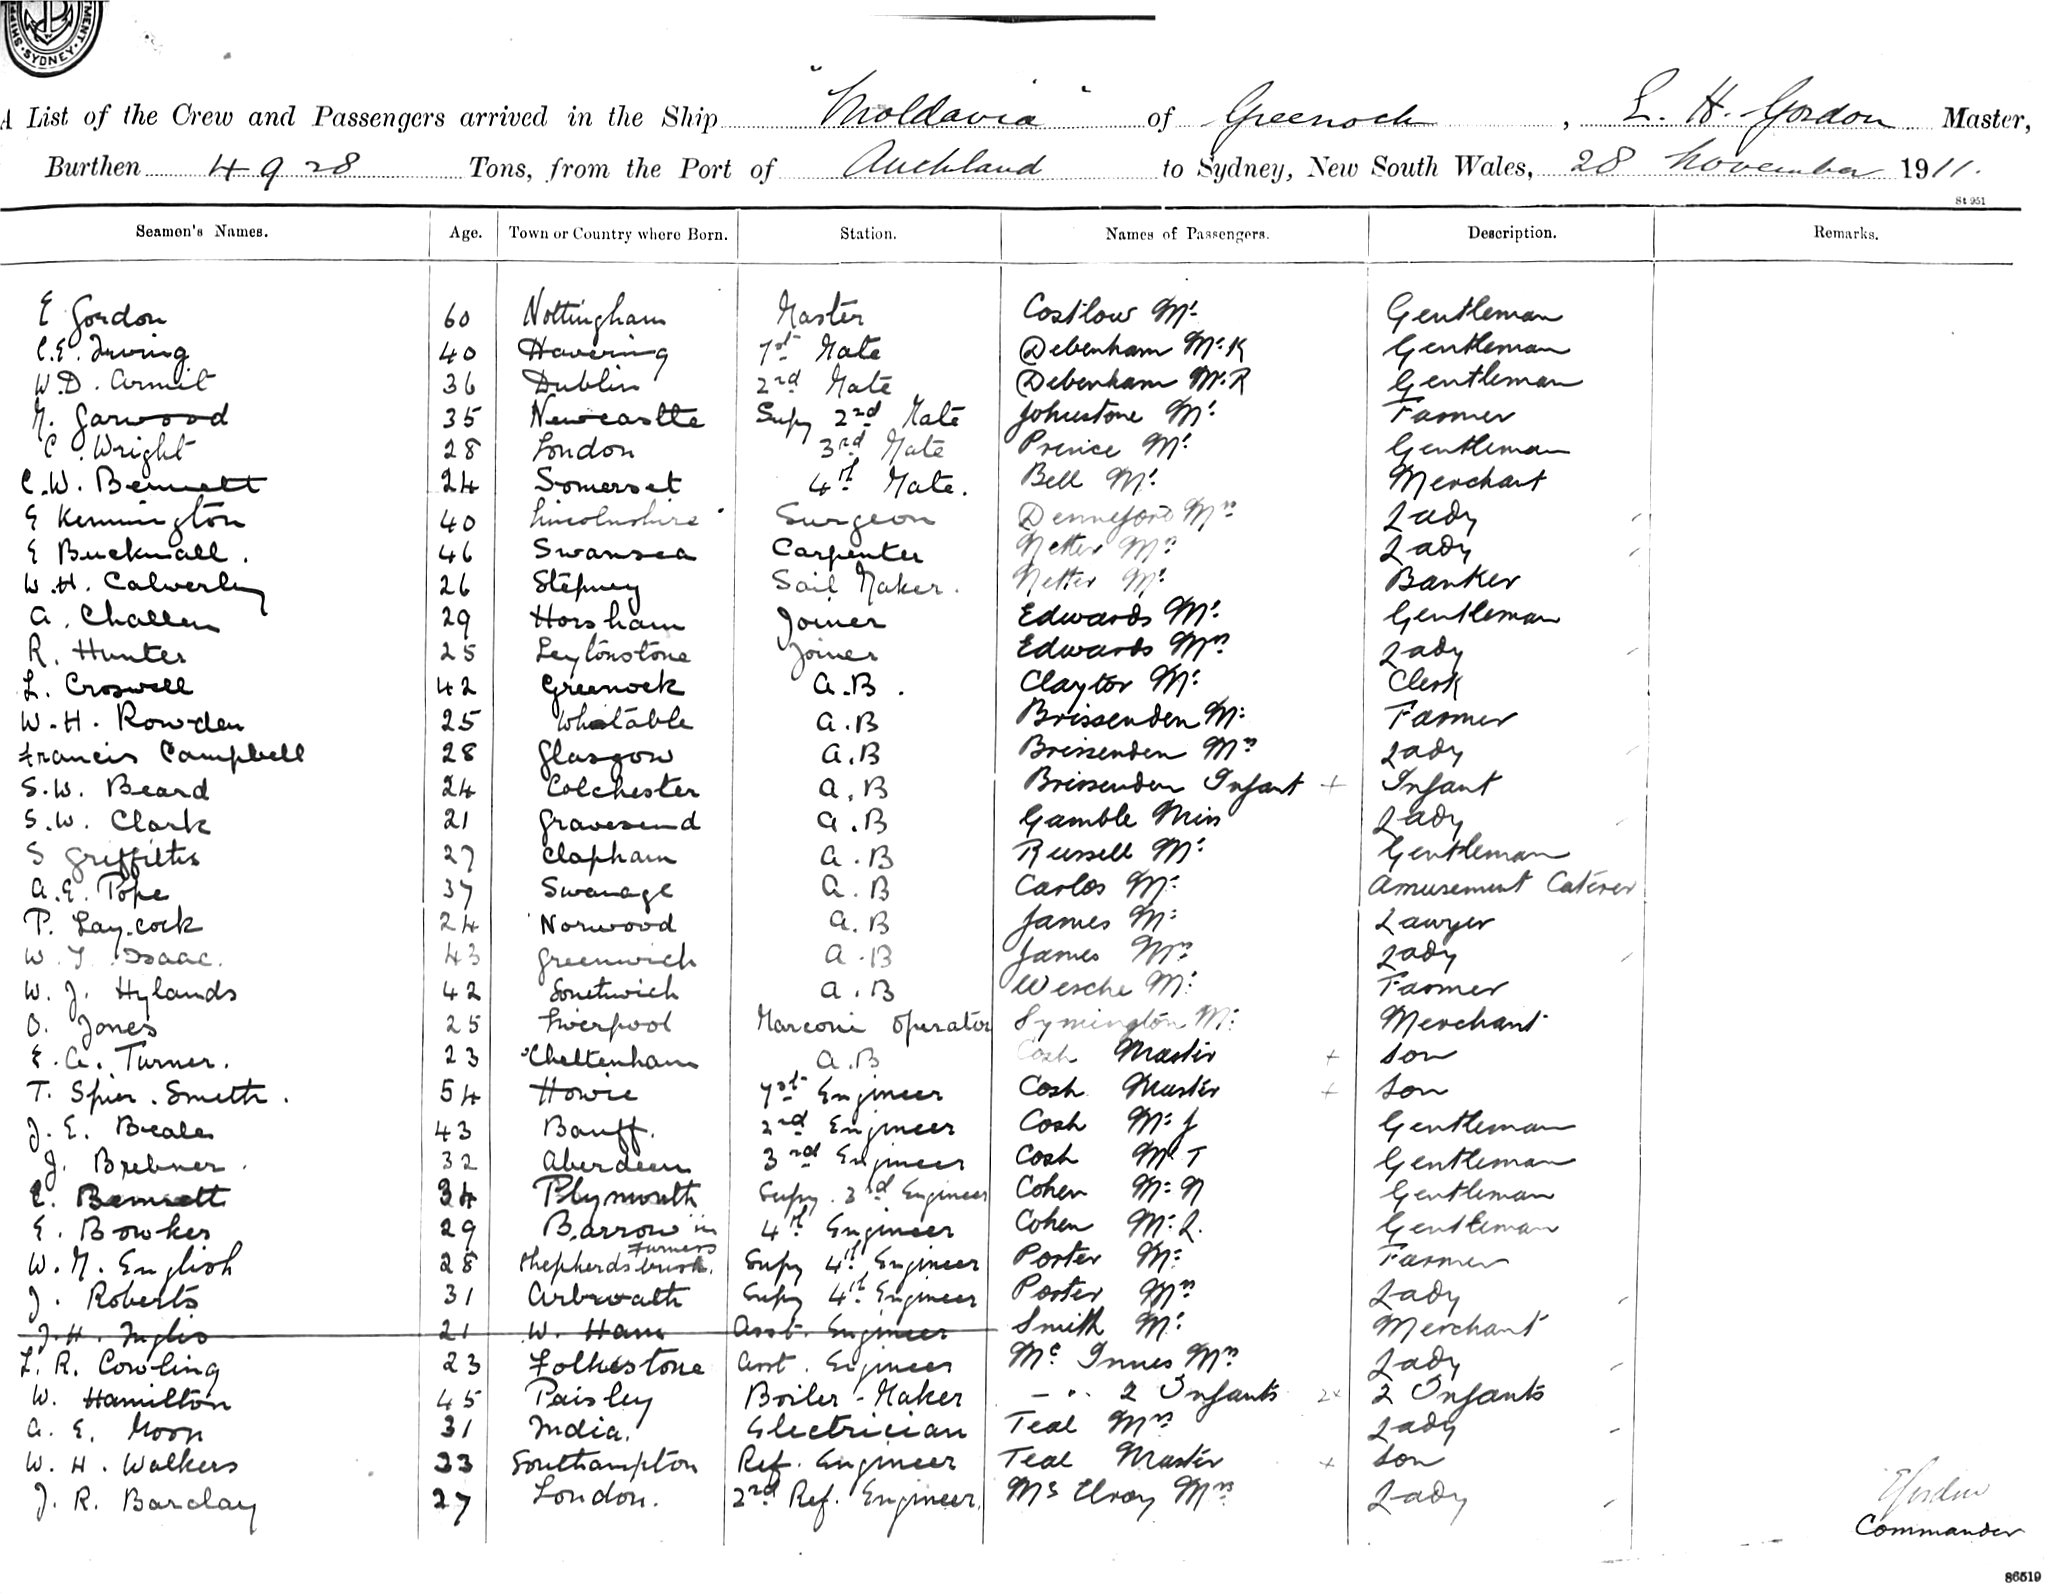 SYDNEY
A List of the Crew and Passengers arrived in the Ship "Moldavia" of Greenock, L. H. Gordon Master,
Burthen 4928 Tons, from the Port of Auckland to Sydney, New South Wales, 28 November 1911.
St 951
Seamen's Names. Age. Town or Country where Born. Station. Names of Passengers. Description. Remarks.
E Gordon 60 Nottingham Master Costlow Mr Gentleman
C.E. Irving 40 Havering 1st Mate Debenham Mr K Gentleman
W.D. Armit 36 Dublin 2nd Mate Debenham Mr R Gentleman
M. Garwood 35 Newcastle Supy 2nd Mate Johnstone Mr Farmer
C. Wright 28 London 3rd Mate Prince Mr Gentleman
C.W. Bennett 24 Somerset 4th Mate. Bell Mr Merchant
E Kennington 40 Lincolnshire Surgeon Denneford Mrs Lady
E Bucknall. 46 Swansea Carpenter Netter Mrs Lady
W.H. Calverley 26 Stepney Sail Maker. Netter Mr Banker
A. Challen 29 Horsham Joiner Edwards Mr Gentleman
R. Hunter 25 Leytonstone Joiner Edwards Mrs Lady
L. Croswell 42 Greenock A.B. Clayton Mr Clerk
W.H. Rowden 25 Whitstable A.B Brissenden Mr Farmer
Francis Campbell 28 Glasgow A.B Brissenden Mrs Lady
S.W. Beard 24 Colchester A.B Brissenden Infant + Infant
S.W. Clark 21 Gravesend A.B Gamble Miss Lady
S Griffiths 27 Clapham A.B Russell Mr Gentleman
A.E. Pope 37 Swanage A.B Carlos Mr Amusement Caterer
P. Laycock 24 Norwood A.B James Mr Lawyer
W. T. Isaac. 43 Greenwich A.B James Mrs Lady
W. J. Hylands 42 A.B Wesche Mr Farmer
O. Jones 25 Liverpool Marconi Operator Symington Mr Merchant
E. A. Turner. 23 Cheltenham A.B Cosh Master + Son
T. Spier. Smith. 54 Howie 1st Engineer Cosh Master + Son
J. E. Beale 43 Banff. 2nd Engineer Cosh Mr J Gentleman
J. Brebner. 32 Aberdeen 3rd Engineer Cosh Mr T Gentleman
E. Bennett 34 Plymouth Supy. 3rd Engineer Cohen Mr N Gentleman
E. Bowker 29 Barrow in Furness 4th Engineer Cohen Mr L. Gentleman
W. M. English 28 Shepherdsbush. Supy 4th Engineer Porter Mr Farmer
J. Roberts 31 Arbroath Supy 4th Engineer Porter Mrs Lady
J. H. Inglis 21 W. Ham Asst. Engineer Smith Mr Merchant
L. R. Cowling 23 Folkestone Asst. Engineer Mc Innes Mrs Lady
W. Hamilton 45 Paisley Boiler-Maker - " 2 Infants 2+ 2 Infants
A. E. Moon 31 India. Electrician Teal Mrs Lady
W. H. Walkers 33 Southampton Ref. Engineer Teal Master + Son
J. R. Barclay 27 London. 2nd Ref. Engineer. Mc Elroy Mrs Lady
E Gordon
Commander
86519